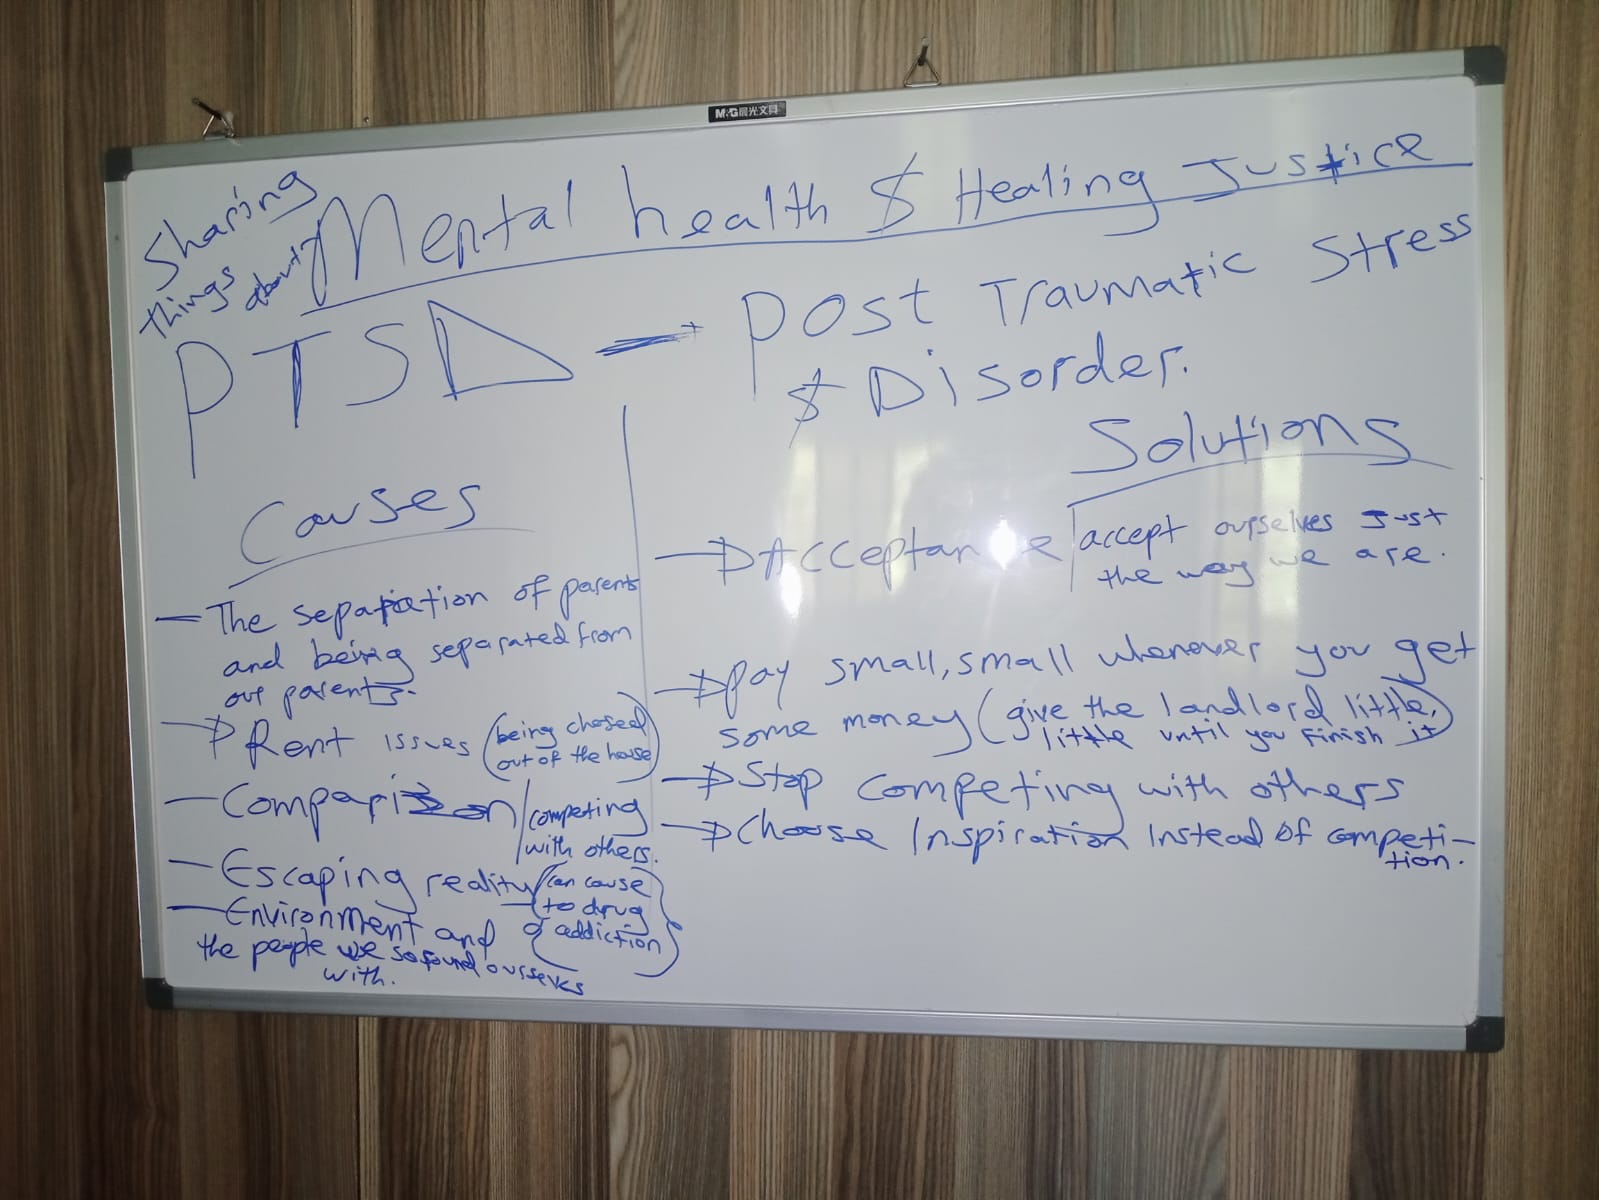 M&G晨光文具
Sharing
things about
Mental health & Healing Justice
PTSD → Post Traumatic Stress
& Disorder.
Causes
— The separation of parents
and being separated from
our parents.
→ Rent issues (being chased
out of the house)
— Comparison / competing
with others.
— Escaping reality (can cause
to drug
addiction)
— Environment and
the people we found ourselves
with.
Solutions
→ Acceptance / accept ourselves Just
the way we are.
→ Pay small, small whenever you get
some money (give the landlord little,
little until you finish it)
→ Stop competing with others
→ Choose Inspiration Instead of competi-
tion.